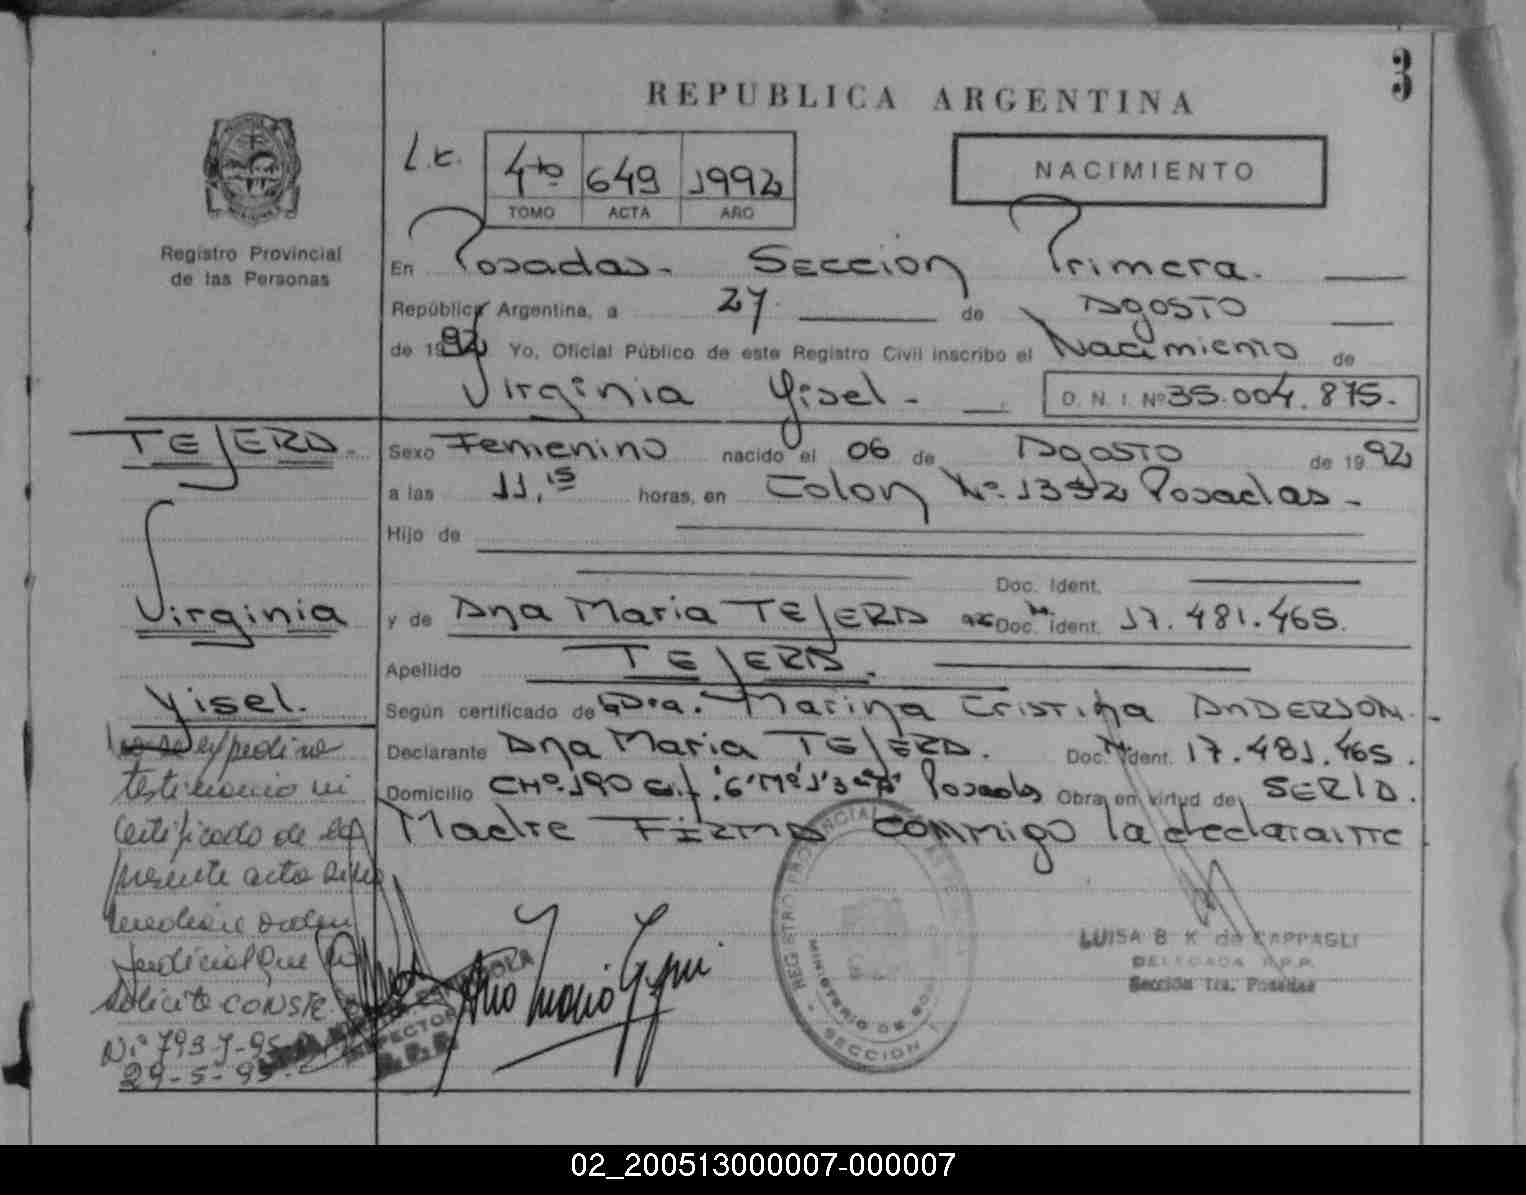 3
REPUBLICA ARGENTINA
NACIMIENTO
4to 649 1992
TOMO ACTA AÑO
Registro Provincial
de las Personas
En Posadas - Seccion Primera.
República Argentina, a 27 de Agosto
de 1992 Yo, Oficial Público de este Registro Civil inscribo el Nacimiento de
Virginia Yisel - D. N. I. Nº 35.004.875.-
TEJERA.
Virginia
Yisel.
Sexo Femenino nacido el 06 de Agosto de 1992
a las 11,15 horas, en Colon Nº 1332 Posadas -
Hijo de
Doc. Ident.
y de Ana Maria TEJERA Doc. Ident. 17.481.465.
Apellido TEJERA.
Según certificado de Dra. Marina Cristina ANDERSON.-
Declarante Ana Maria TEJERA. Doc. Ident. 17.481.465.
Domicilio CHº.190 Posadas Obra en virtud de SERLA.
Madre FIRMA conmigo la declarante.
No se expedira
testimonio ni
Certificado de la
presente acta sino
mediare orden
Judicial que lo
Solicite CONSTE
Nº 793-7-95
29-5-95
INSPECTOR
REGISTRO PROVINCIAL
MINISTERIO DE
SECCION
LUISA B K de CAPPAGLI
DELEGADA R.P.P.
Sección 1ra. Posadas
02_200513000007-000007